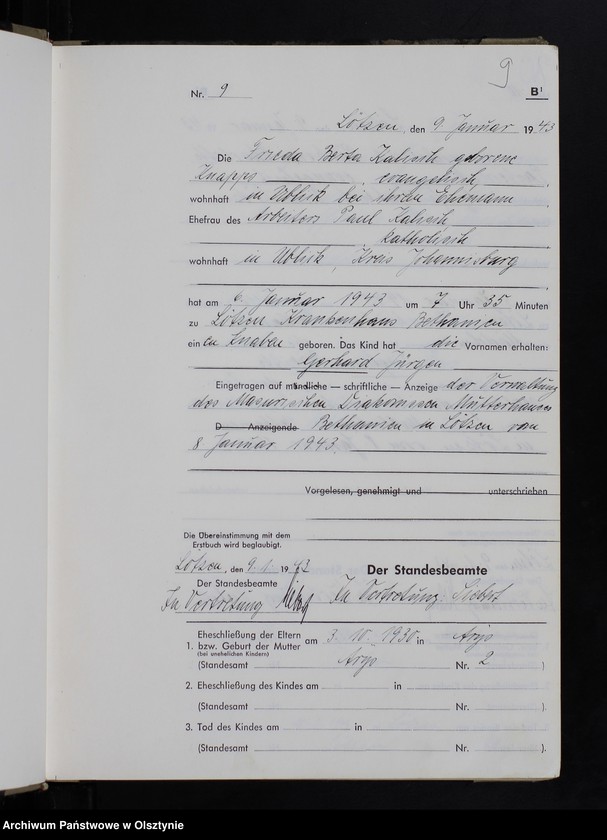 9
Nr. 9
B¹
Lötzen, den 9. Januar 1943
Die Frieda Berta Kalisch geborene
Knapps, evangelisch,
wohnhaft in Ublick bei ihrem Ehemann
Ehefrau des Arbeiters Paul Kalisch
, katholisch
wohnhaft in Ublick, Kreis Johannisburg
hat am 6. Januar 1943 um 7 Uhr 35 Minuten
zu Lötzen Krankenhaus Bethanien
einen Knaben geboren. Das Kind hat die Vornamen erhalten:
Gerhard Jürgen
Eingetragen auf mündliche — schriftliche — Anzeige der Verwaltung
des Masurischen Diakonissen Mutterhauses
D Anzeigende Bethanien in Lötzen vom
8 Januar 1943.
Vorgelesen, genehmigt und unterschrieben
Die Übereinstimmung mit dem
Erstbuch wird beglaubigt.
Lötzen, den 9. 1. 1943
Der Standesbeamte
Der Standesbeamte
In Vertretung
In Vertretung: Siebert
Eheschließung der Eltern am 3. 10. 1930 in Arys
1. bzw. Geburt der Mutter
(bei unehelichen Kindern)
(Standesamt Arys Nr. 2 )
2. Eheschließung des Kindes am in
(Standesamt Nr. ).
3. Tod des Kindes am in
(Standesamt Nr. ).
Archiwum Państwowe w Olsztynie